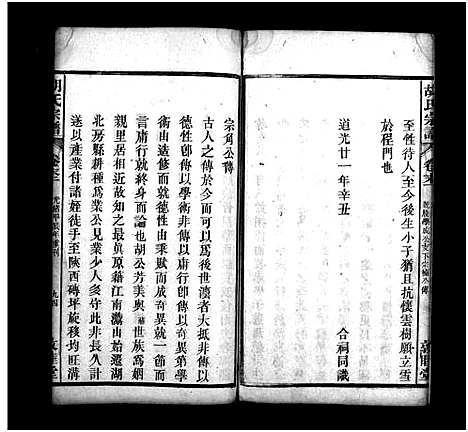 胡氏宗譜
至性待人至今後生小子猶且抗懷雲樹願立雪
於程門也
道光廿一年辛丑
合祠同識
宗角公傳
古人之傳於今而可以為後世瀆者大抵非傳以
德性卽傳以學修非傳以庸行卽傳以奇異第學
修由造修而就德性由乘賦而成奇異就一節而
言庸行就終身而論也胡公芳美與 世族為姻
親里居相近故知之最真原藉江南灊山始遷湖
北房縣耕種為業公見業少人多守此非長久計
遂以產業付諸姪徒手至陝西磚坪旋移均旺溝
胡氏宗譜